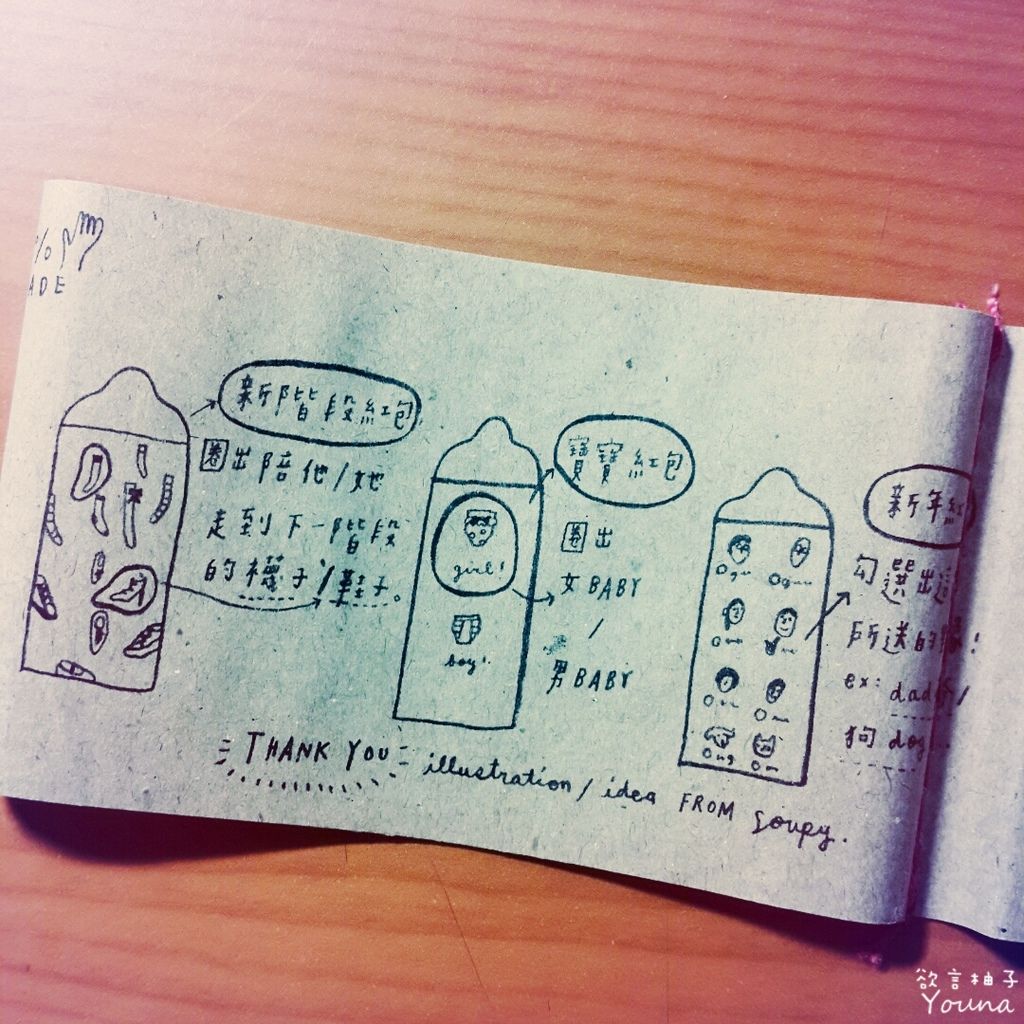 %
ADE
新階段紅包
圈出陪他/她
走到下一階段
的襪子/鞋子。
寶寶紅包
圈出
女BABY
/
男BABY
girl!
boy!
新年紅
勾選出這
所送的
ex: dad爸/
狗 dog...
THANK YOU illustration/idea FROM Soupy.
欲言柚子
Youna